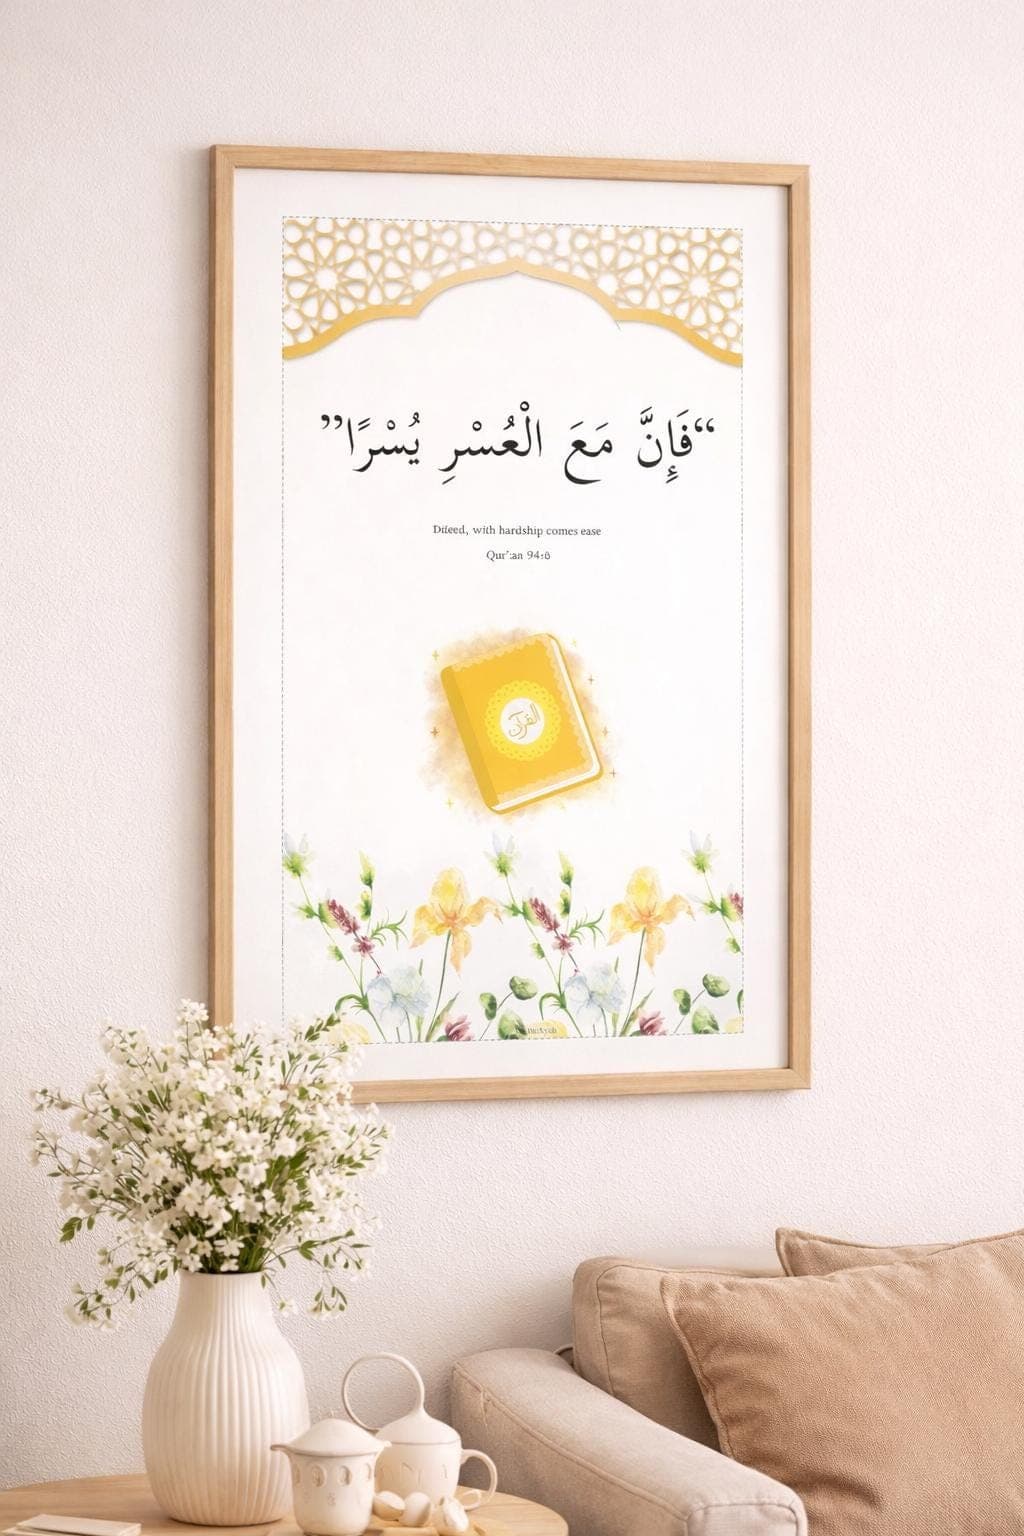 “فَإِنَّ مَعَ الْعُسْرِ يُسْرًا”
Diteed, with hardship comes ease
Qur':an 94:6
القرآن